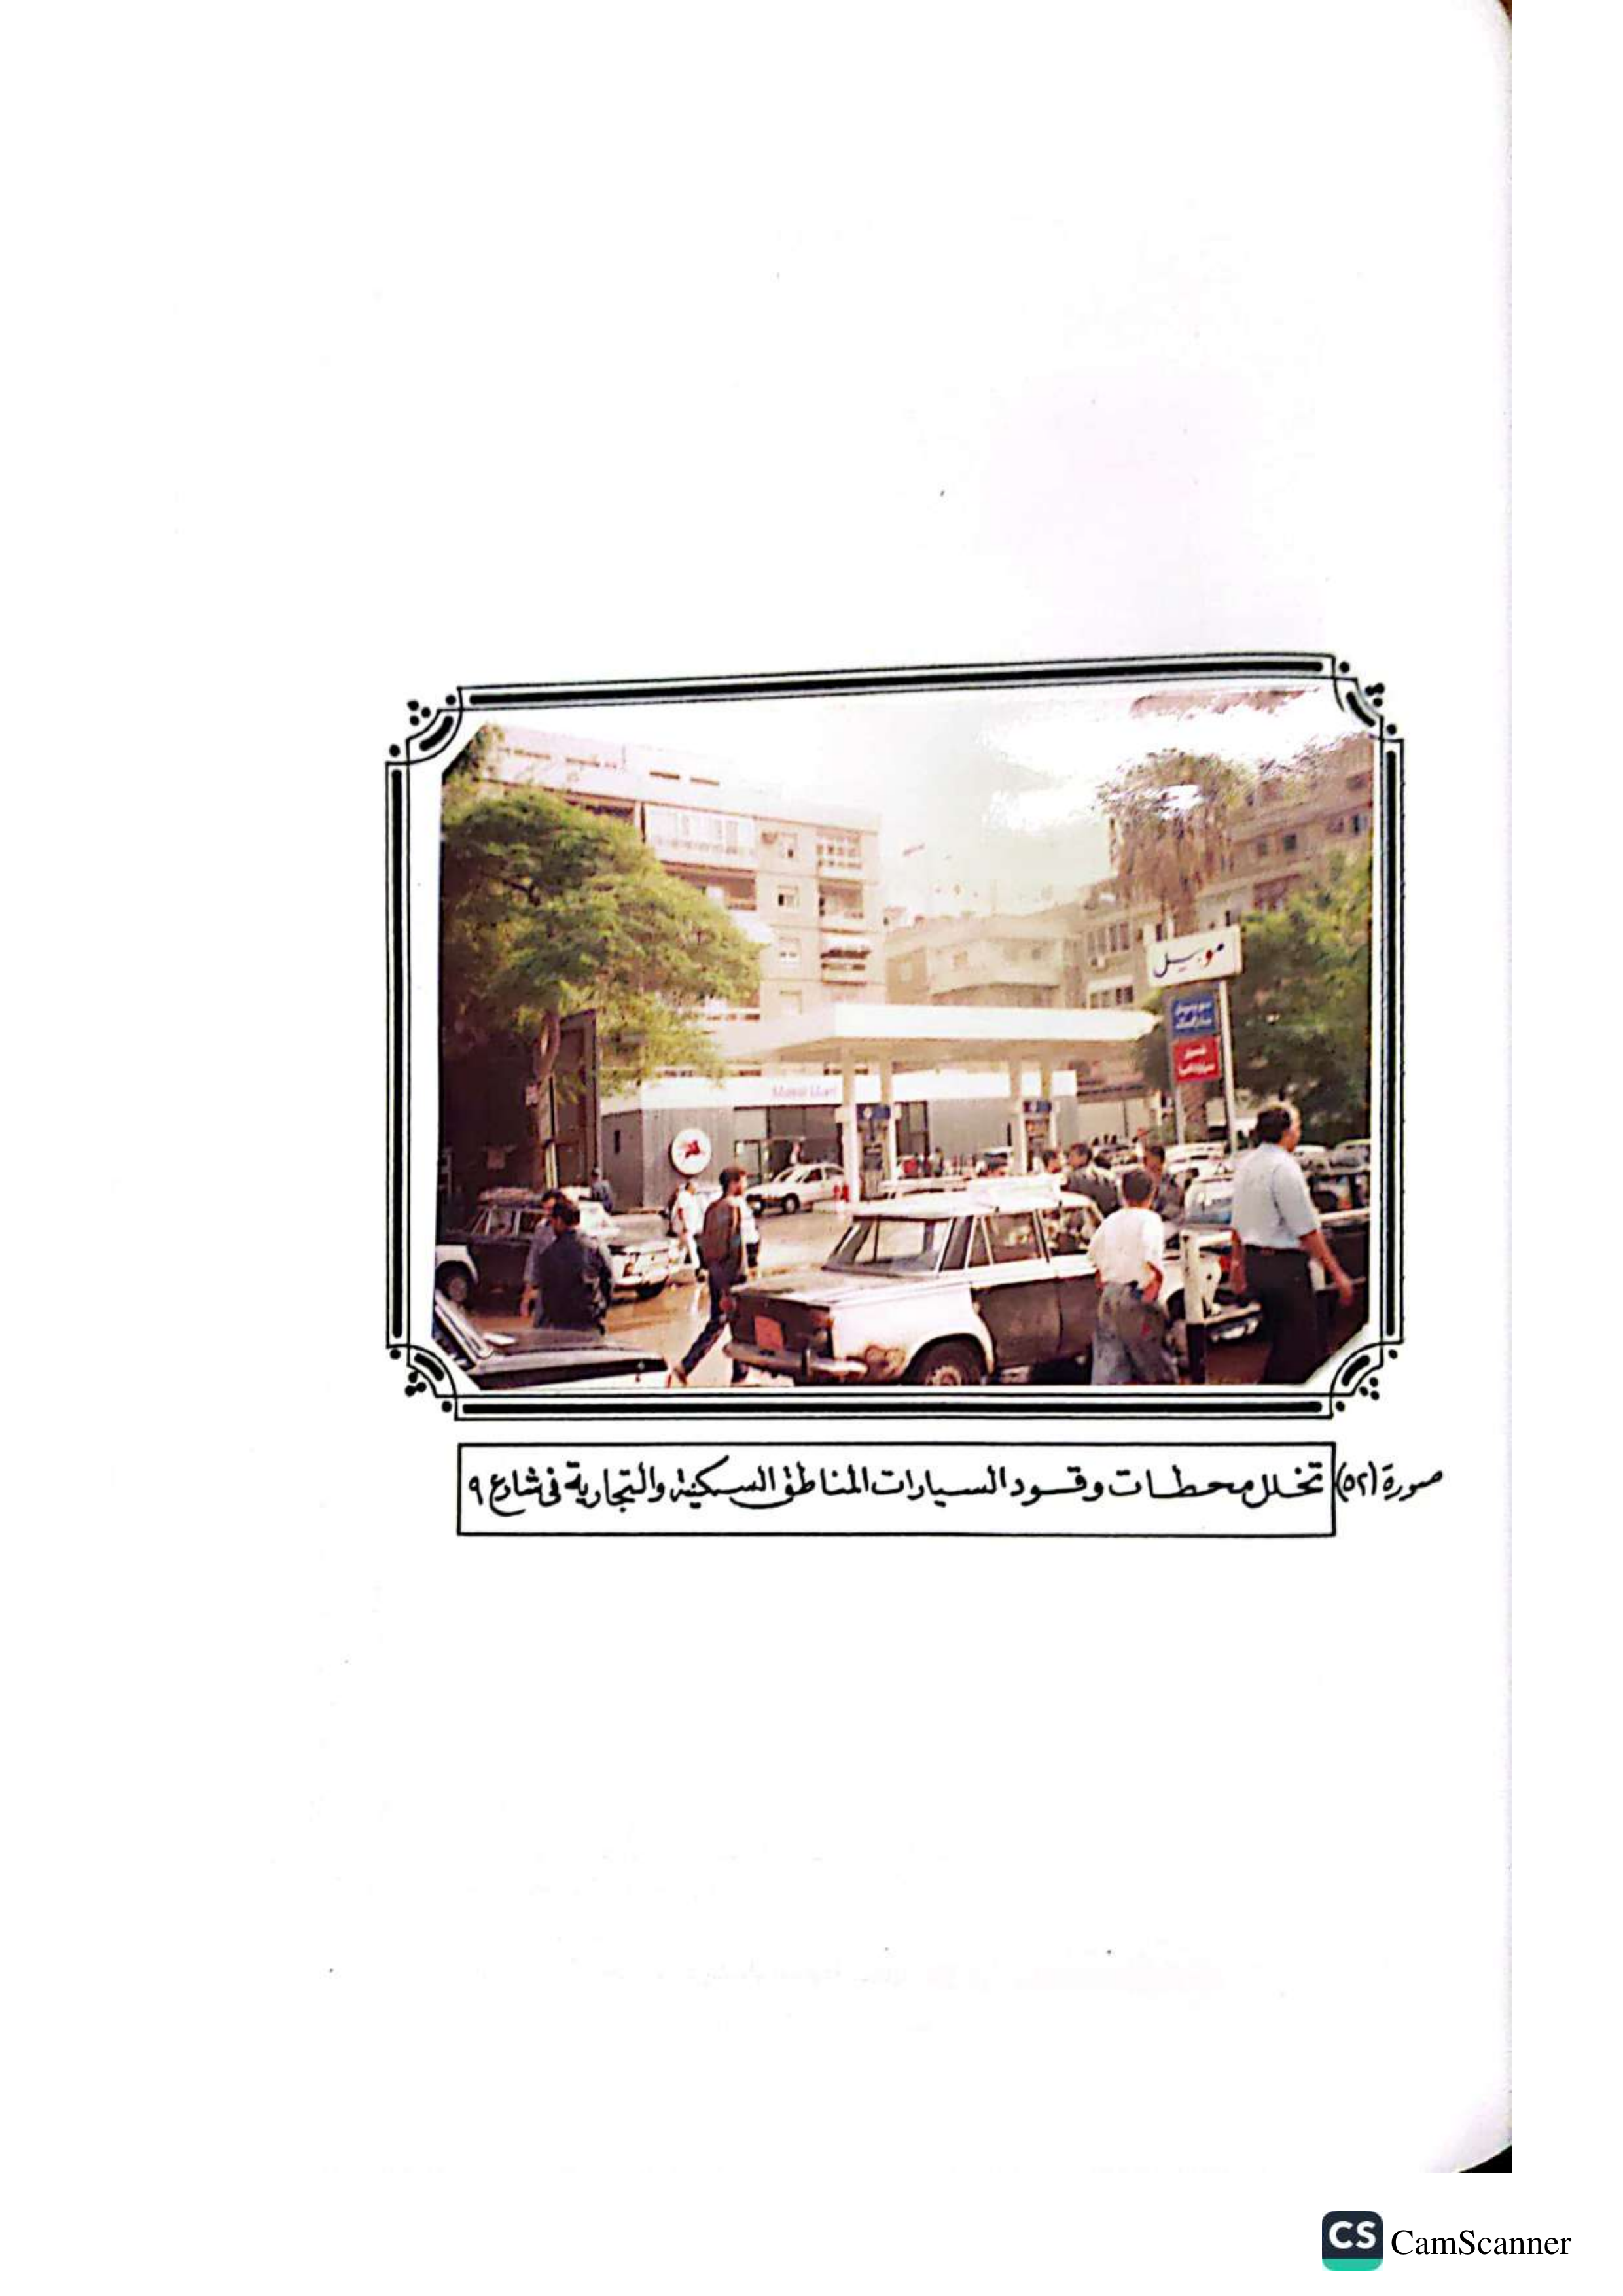 موبيل
Mobil Mart
صورة (٥٢) تخلل محطات وقود السيارات المناطق السكنية والتجارية فى شارع ٩
CS CamScanner